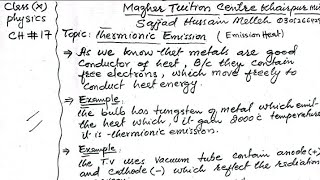 Class (X)
physics
CH # 17
Magher Tuition Centre Khairpur Mi
Sajjad Hussain Melleh
Topic: Thermionic Emission (Emission Heat)
⇒ As we know thet metals are good
conductor of heet, B/c they contain
free electrons, which move freely to
conduct heat energy.
⇒ Example:
The bulb has tungsten a metal which emit
the heet which, it gain 2000°c temperature
it is -thermionic emission.
⇒ Example:
The T.V uses Vacuum tube contain anode (+)
and cathode (-) which reflect the radiation